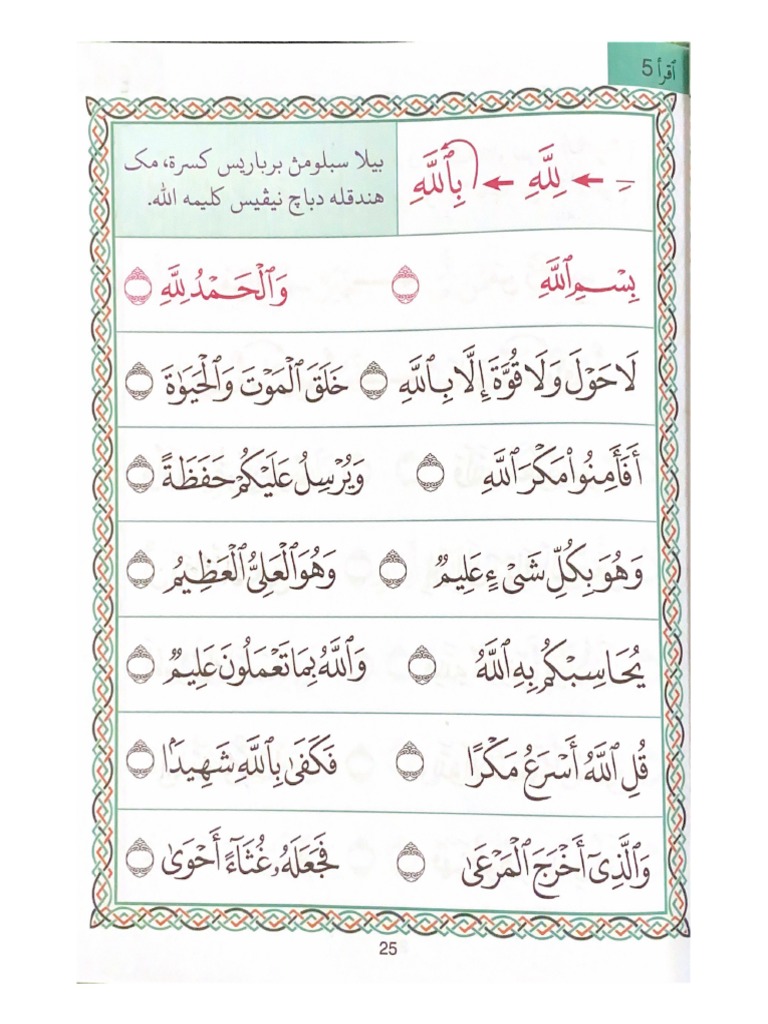 اقرأ 5
ـِ ← لِلَّهِ ← بِٱللَّهِ
بيلا سبلومڽ برباريس كسرة، مك
هندقله دباچ نيڤيس كليمه الله.
بِسْمِ ٱللَّهِ ۝ وَٱلْحَمْدُ لِلَّهِ ۝
لَا حَوْلَ وَلَا قُوَّةَ إِلَّا بِٱللَّهِ ۝ خَلَقَ ٱلْمَوْتَ وَٱلْحَيَوٰةَ ۝
أَفَأَمِنُوا۟ مَكْرَ ٱللَّهِ ۝ وَيُرْسِلُ عَلَيْكُمْ حَفَظَةً ۝
وَهُوَ بِكُلِّ شَىْءٍ عَلِيمٌ ۝ وَهُوَ ٱلْعَلِىُّ ٱلْعَظِيمُ ۝
يُحَاسِبْكُم بِهِ ٱللَّهُ ۝ وَٱللَّهُ بِمَا تَعْمَلُونَ عَلِيمٌ ۝
قُلِ ٱللَّهُ أَسْرَعُ مَكْرًا ۝ فَكَفَىٰ بِٱللَّهِ شَهِيدًۢا ۝
وَٱلَّذِىٓ أَخْرَجَ ٱلْمَرْعَىٰ ۝ فَجَعَلَهُۥ غُثَآءً أَحْوَىٰ ۝
25